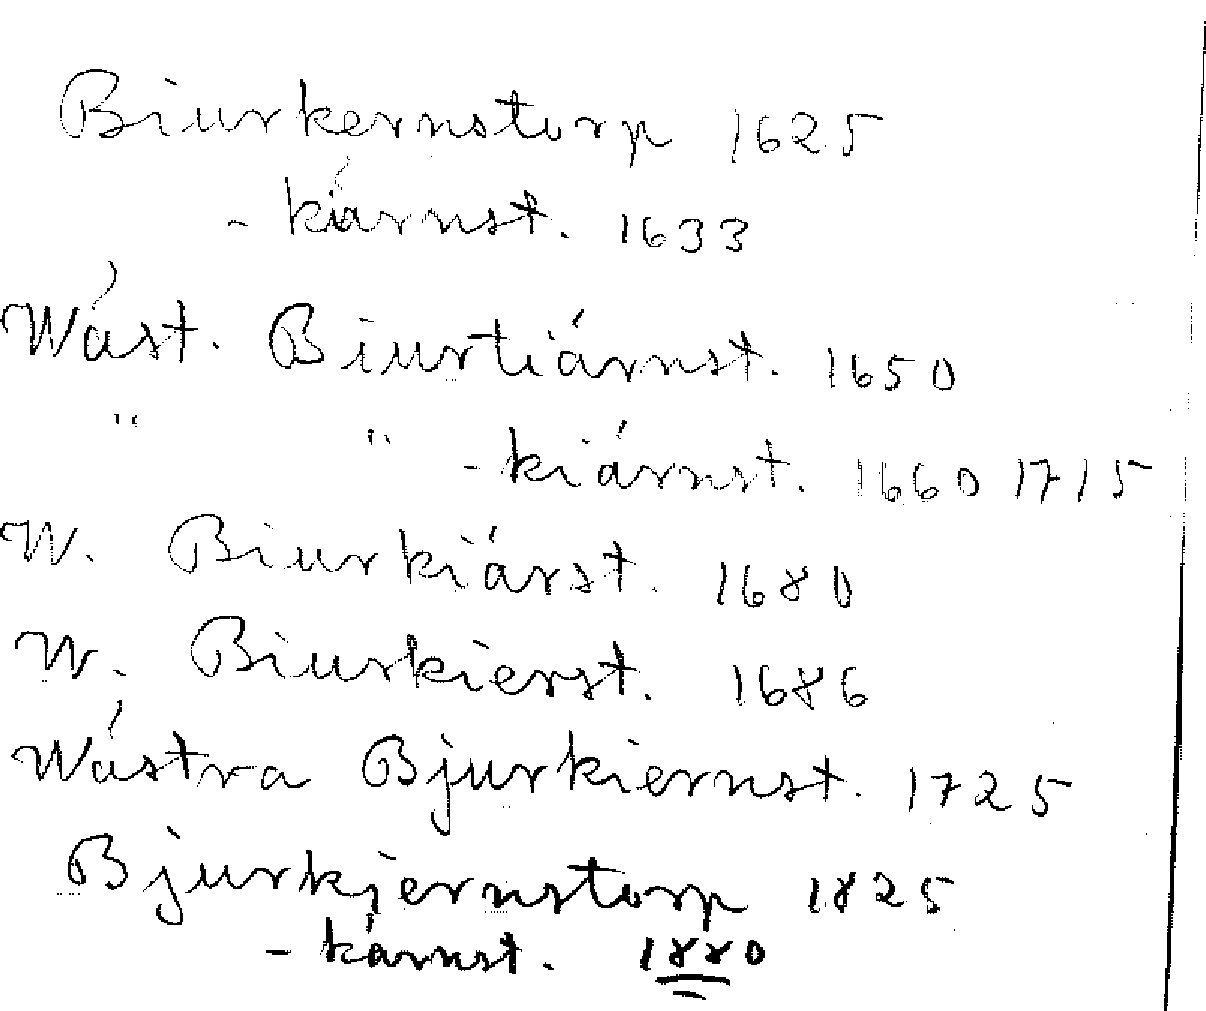 Biurkernstorp 1625
- kiárnst. 1633
Wást. Biurtiárnst. 1650
" " - kiárnst. 1660 1715
W. Biurkiárst. 1680
W. Biurkierst. 1686
Wástra Bjurkiernst. 1725
Bjurkjernstorp 1825
- kárnst. 1880